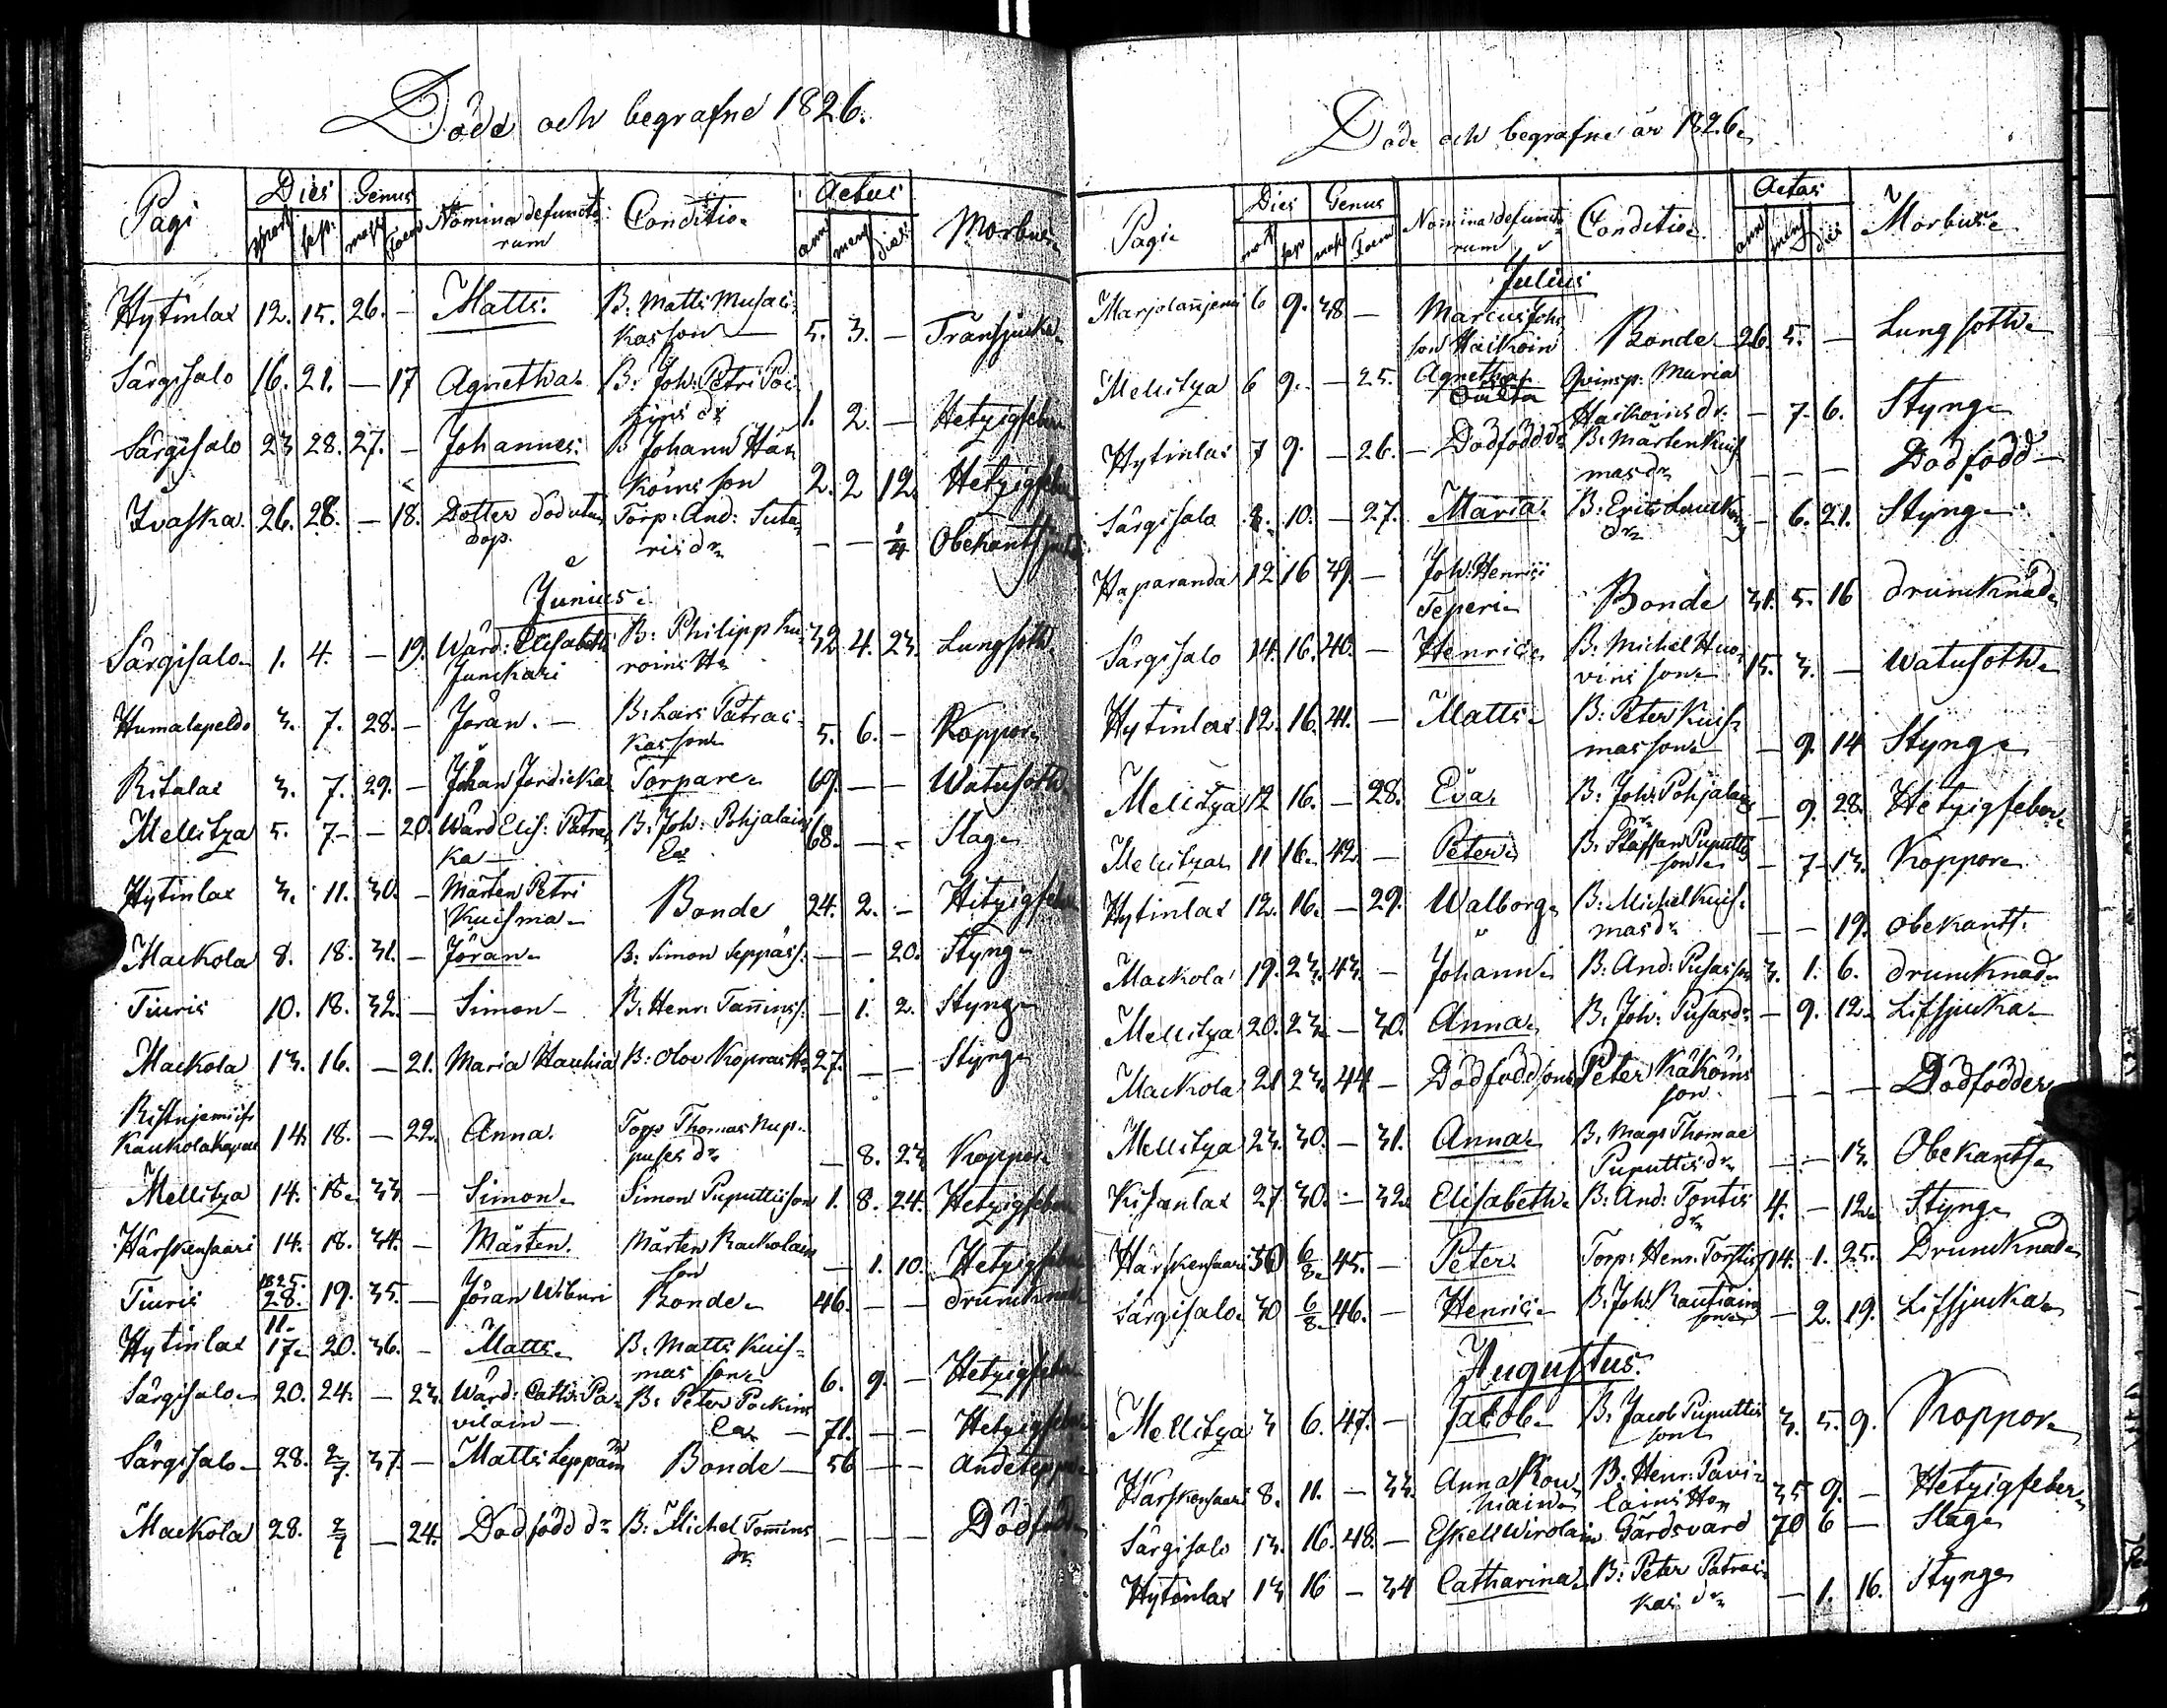 Döde och begrafne 1826.
Pagi Dies Genus Nomina defuncto- Conditio. Aetus Morbus.
mort sep. masc Foem rum ann mens dies
Hytinlax 12. 15. 26. – Matts. B. Matts Musaci-
kas son 5. 3. – Trånsjuka
Särgisalo 16. 21. – 17 Agnetha. B. Joh: Petri Poi-
1. 2. – Hetzigfeber
Särgisalo 23 28. 27. – Johannes. B Johann Hän
köins son 2. 2 12. Hetzigfeber
Ivaska. 26. 28. – 18. Dotter död utan Torp: And: Suta-
dop. ris dr – – 1/4 Obekant
Junius.
Särgisalo 1. 4. – 19. Wärd: Elisabeth B: Philipp Ku- 32 4. 23. Lungsoth
Junckari roins Ha
Humalapeldo 3. 7. 28. – Jöran. – B: Lars Patraci-
kas son 5. 6. – Koppor
Ritalax 3. 7. 29. – Johan Jordicka Torpare 69. – – Watusoth
Mellitza 5. 7 – 20. Wärd Elis: Patra B: Joh: Pohjalain 68. – – Slag
ka Ea
Hytinlax 3. 11. 30. – Mårten Petri
Kuisma Bonde 24. 2. – Hitzigfeber
Mackola 8. 18. 31. – Jöran B: Simon Seppäs s: – – 20. Styng
Tiuris 10. 18. 32. – Simon – B: Henr: Tanins s. – 1. 2. Styng
Mackola 13. 16. – 21. Maria Hauhia B: Olov Kopras Ha 27. – – Styng
Kaukola Kapel 14. 18. – 22. Anna. Torp Thomas Nup-
puses dr – 8. 23 Koppor
Mellitza 14. 18. 33 – Simon Simon Puputtis son 1. 8. 24. Hetzigfeber
Härskensaari 14. 18. 34. – Mårten. Mårten Rackolain
son – 1. 10. Hetzigfeber
Tiuris 1825. 28. 19. 35. – Jöran Wiburi Bonde 46. – – drunknad
11.
Hytinlax 17. 20. 36. – Matts B. Matts Kuis-
mas son 6. 9. – Hetzigfeber
Särgisalo 20. 24. – 23. Wärd: Cath: Pa- B: Peter Pockins
vilain Ea 71. – – Hetzigfeber
Särgisalo 28. 2/7. 37. – Matts Leppäin Bonde 56 – – Andeteppa
Mackola 28. 2/7 – 24. Dödfödd dr B: Michel Tomins
dr – – – Dödfödd
Döde och begrafne år 1826
Pagi Dies Genus Nomina defuncto- Conditio Aetas Morbus
mort sep masc Foem rum ann mens dies
Julius
Marjolanjemi 6 9. 38 – Marcus Joh:
son Haikoin Bonde 26. 5. – Lungsoth
Mellitza 6 9. – 25. Agnetha Qvinsp: Maria
oäkta Haikoins dr – 7. 6. Styng
Hytinlax 7 9. – 26. – Dödfödd dr B: Mårten Kuis
mas dr – – – Dödfödd
Särgisalo 8. 10. – 27. Maria B: Eric Lauck
dr – 6. 21. Styng
Haparanda 12 16 39. – Joh: Henrici
Teperi Bonde 31. 5. 16 drunknad
Särgisalo 14. 16. 40. – Henric B: Michel Huo-
vins son 15. 3. – Watusoth
Hytinlax 12. 16. 41. – Matts B: Peter Kuis-
mas son – 9. 14 Styng
Mellitza 12 16. – 28. Eva B: Joh: Pohjalains
dr – 9. 28. Hetzigfeber
Mellitza 11 16. 42. – Peter B: Staffan Puputtis
son – 7 13. Koppor
Hytinlax 12. 16. – 29. Walborg B: Michel Kuis-
mas dr – – 19. obekant.
Mackola 19. 23. 43. – Johann B: And: Pusas son 3. 1. 6. drunknad
Mellitza 20. 23 – 30. Anna B. Joh: Pusas dr – 9. 12. Lifsjuka
Mackola 21 23. 44 – Dödfödd son Peter Käköins
son – – – Dödfödder
Mellitza 23. 30. – 31. Anna B. Mags Thomae
Puputtis dr – – 13. Obekant
Kisanlax 27 30. – 32. Elisabeth B: And: Tontis 4. – 12. Styng
dr
Härskensaari 30 6/8. 45. – Peter Torp: Henr: Torstis 14. 1. 25. Drunknad
Särgisalo 30 6/8. 46. – Henric B. Joh: Rautiains
son – 2. 19. Lifsjuka
Augustus.
Mellitza 3 6. 47. – Jacob B. Jacob Puputtis 3. 5. 9. Koppor
son
Härskensaari 8. 11. – 33. Anna Rou- B. Henr: Pavi-
hiain lains Ha 35 9. – Hetzigfeber
Särgisalo 13. 16. 48. – Eskell Wirolain Gårdsvard 70 6 – Slag
Hytinlax 13 16 – 34 Catharina B: Peter Patrac-
kas dr – 1. 16. Styng